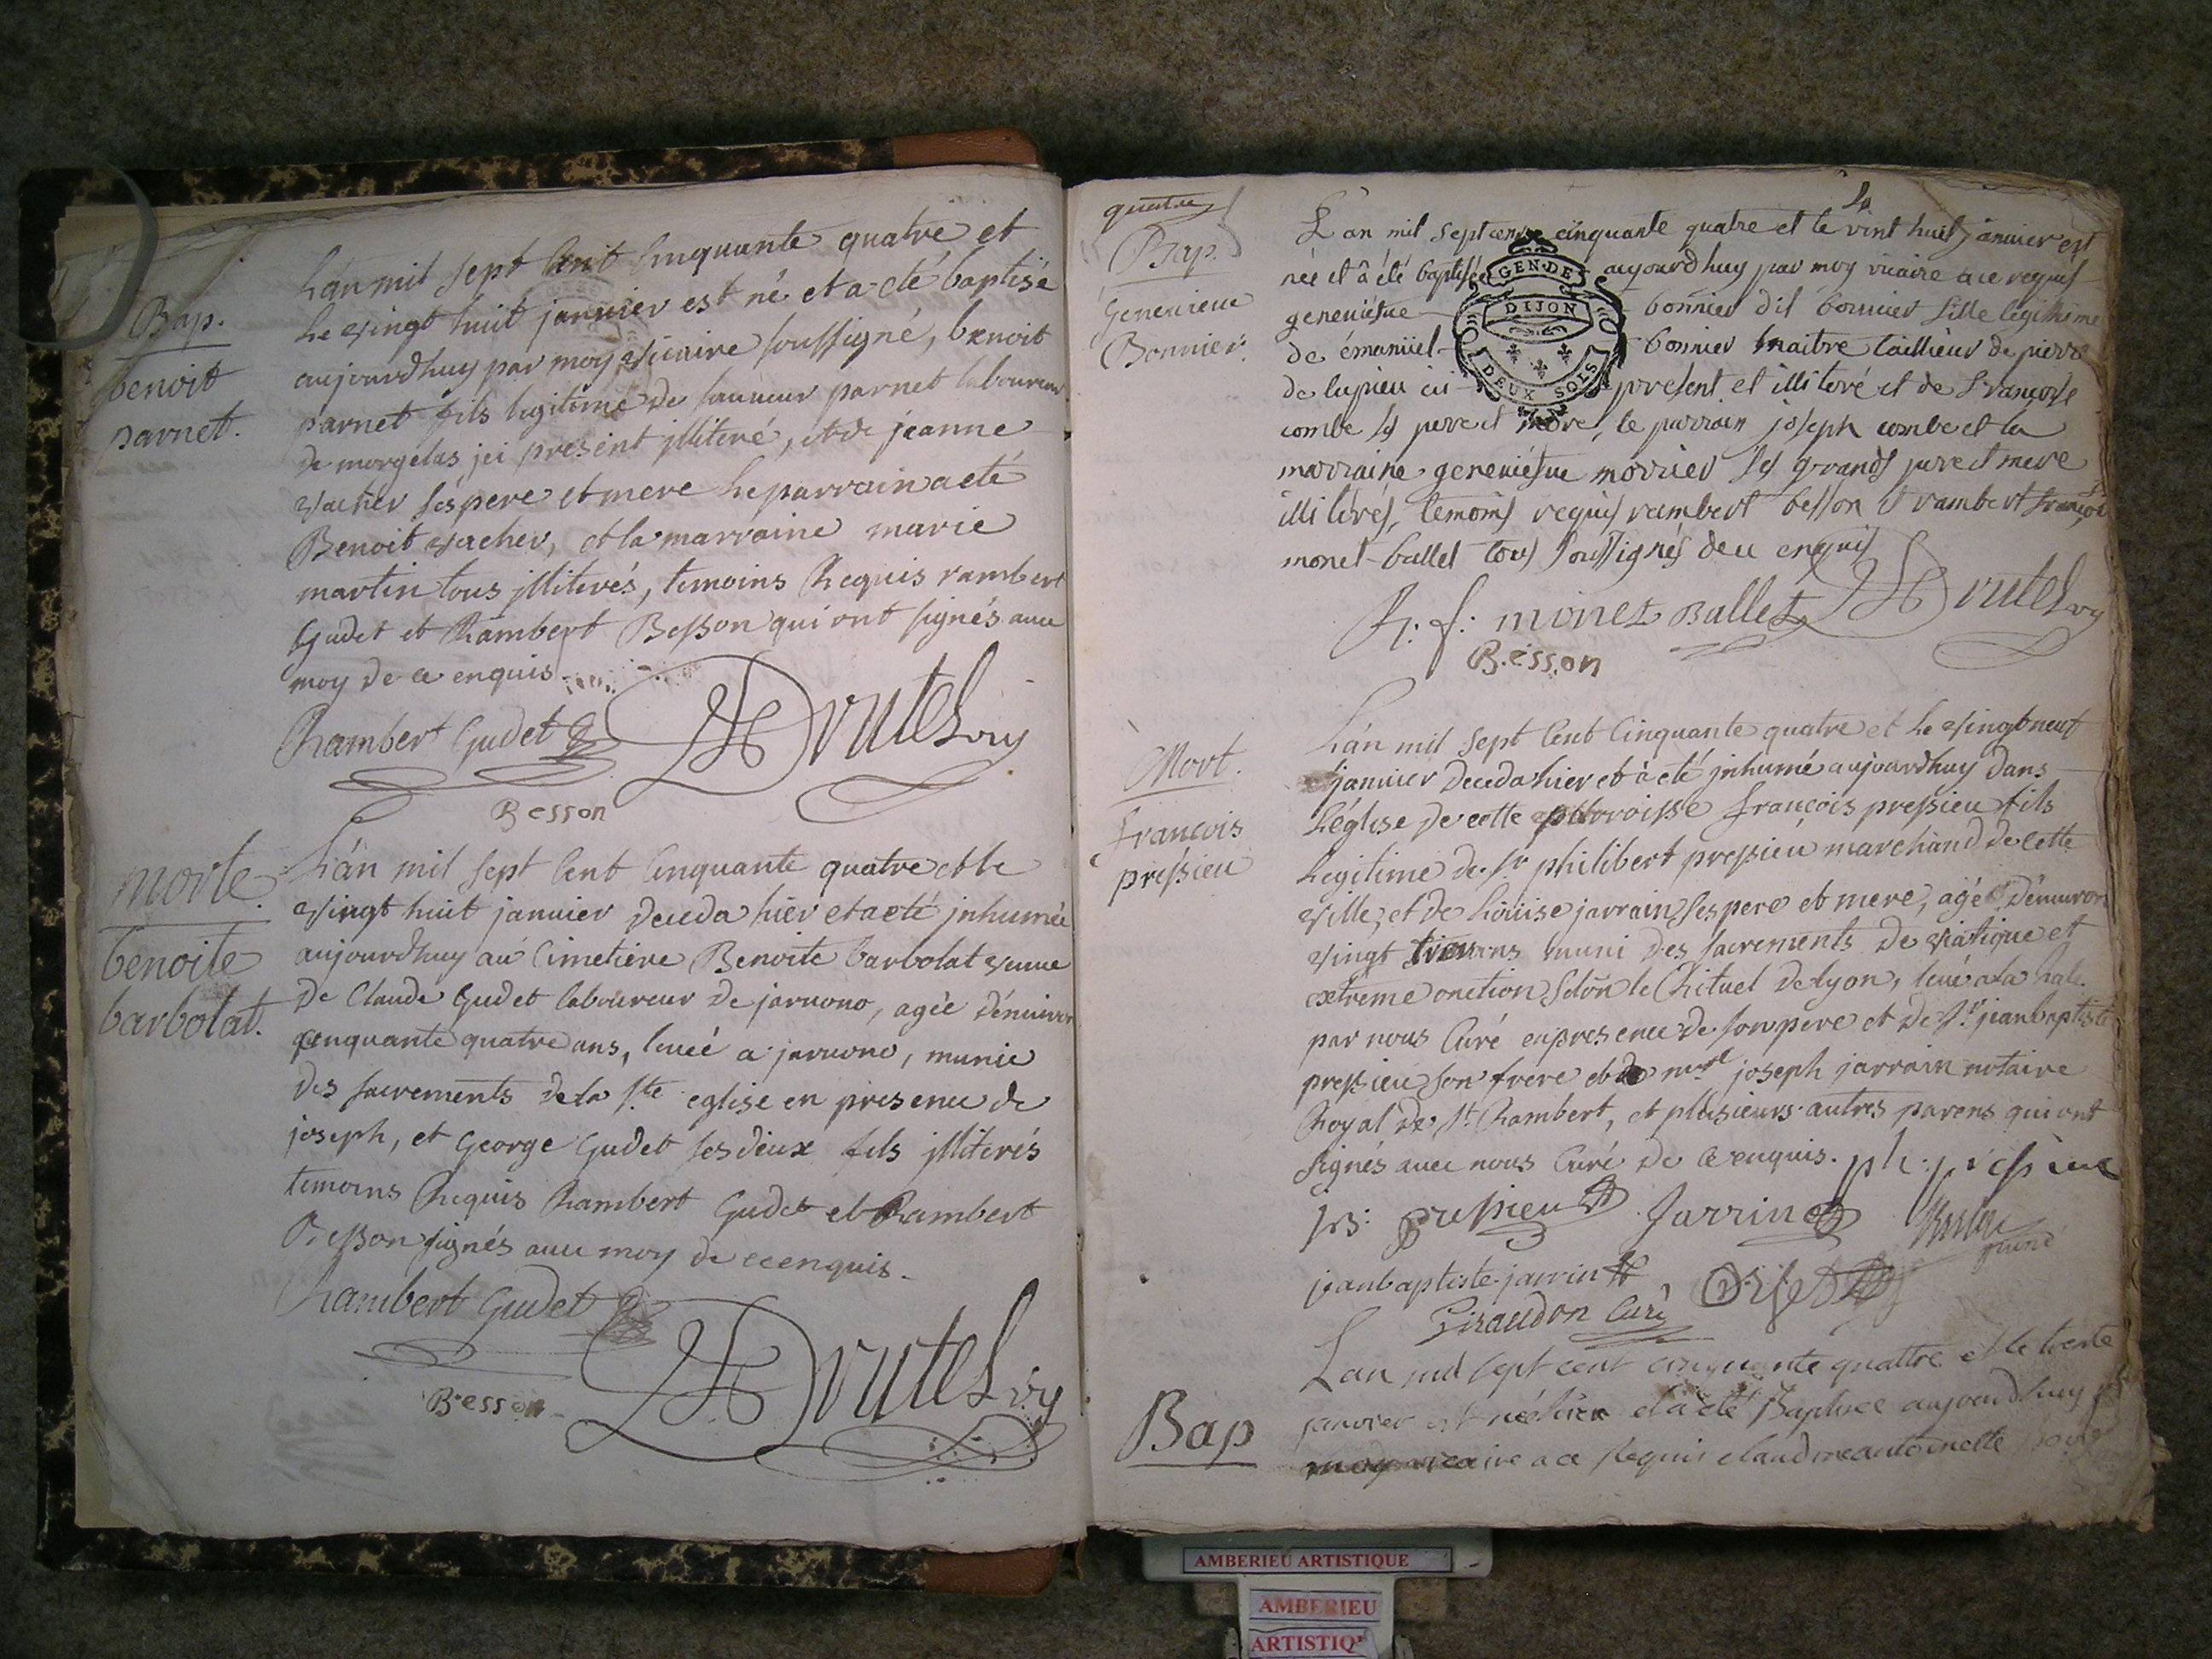 Bap.
benoit
parnet.
L'an mil sept Cent Cinquante quatre et
Le vingt huit janvier est né et a eté baptisé
aujourdhuy par moy vicaire soussigné, benoit
parnet fils legitime de sauveur parnet laboureur
de morgelas jci present jlliteré, et de jeanne
vacher ses pere et mere Le parrain a eté
Benoit vacher, et la marraine marie
martin tous jlliterés, temoins Requis rambert
Gudet et Rambert Besson qui ont signés avec
moy de ce enquis
Rambert Gudet Drutel vy
Besson
morte.
benoite
barbolat.
L'an mil sept Cent Cinquante quatre et le
vingt huit janvier deceda hier et a eté jnhumée
aujourdhuy au Cimetiere Benoite barbolat veuve
de Claude Gudet laboureur de javuono, agée d'environ
cinquante quatre ans, levée a javuono, munie
des sacrements de la ste eglise en presence de
joseph, et George Gudet ses deux fils jlliterés
temoins Requis Rambert Gudet et Rambert
Besson signés avec moy de ce enquis.
Rambert Gudet
Besson Drutel vy
quatre
4
Bap.
Genevieve
Bonnier.
L'an mil sept cens cinquante quatre et le vint huit janvier est
née et â été baptisée aujourdhuy par moy vicaire a ce requis
geneviesve bonnier dit bonnier fille légitime
de émanüel bonnier maitre taillieur de pierre
de lupieu ici present et illiteré et de Françoise
combe ses pere et mere, le parrain joseph combe et la
marraine geneviésve morrier ses grands pere et mere
illiterés, temoins requis rambert besson & rambert françois
monet-ballet tous soussignés de ce enquis
GEN. DE
DIJON
DEUX SOLS
R. f. monet Ballet Drutel vy
Besson
Mort.
françois
pressieu
L'an mil sept Cent Cinquante quatre et Le vingt neuf
janvier deceda hier et à eté jnhumé aujourdhuy dans
L'église de cette parroisse françois pressieu fils
Legitime de sr philibert pressieu marchand de cette
ville, et de Loüise jarrain ses pere et mere, agé d'environ
vingt ans muni des sacrements de viatique et
extreme onction selon le Rituel de lyon, levé a la hale.
par nous Curé en presence de son pere et de sr jean baptiste
pressieu son frere et de mre joseph jarrain notaire
Royal de st Rambert, et plusieurs autres parens qui ont
signés avec nous Curé de ce enquis. ph. pressieu
jB: pressieu Jarrin
jeanbaptiste jarrin
Giraudon Curé
Bap
L an mil sept cent cinquante quattre et le trente
janvier est née hier et a eté Baptisee aujourdhuy
moy vicaire a ce requis claudine antoinette
AMBERIEU ARTISTIQUE
AMBERIEU
ARTISTIQ